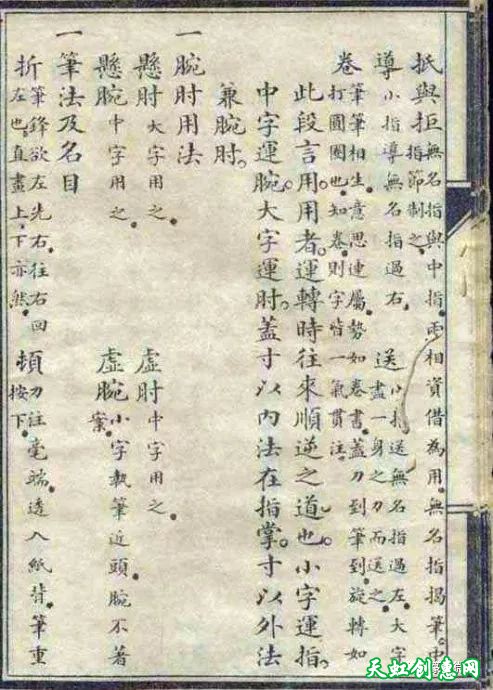 抵與拒無名指與中指。兩相資借為用。無名指揭筆。中
指節制之。
導小指導無名指過右。　送小指送無名指過左。大字
盡一身之力而送之。
卷筆筆相生。意思連屬。勢如卷書。蓋力到筆到。旋轉如
打圓圈也。知卷。則字皆一氣貫注。
此段言用。用者。運轉時往來順逆之道也。小字運指。
中字運腕。大字運肘。蓋寸以內法在指掌。寸以外法
兼腕肘。
一腕肘用法
懸肘大字用之。　虛肘中字用之。
懸腕中字用之。　虛腕小字執筆近頭。腕不著
案。
一筆法及名目
折筆鋒欲左先右。往右回
左也。直畫上下亦然。　頓力注毫端。透入紙背。筆重
按下。
天虹创意网